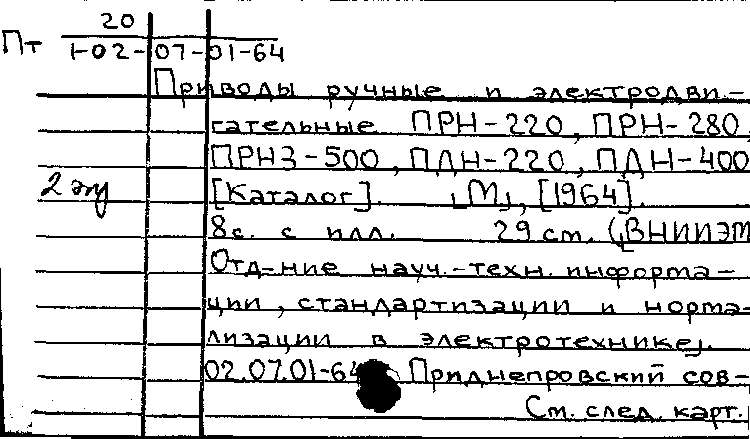 Пт 20
1-02-07-01-64
Приводы ручные и электродви-
гательные ПРН-220, ПРН-280,
ПРНЗ-500, ПДН-220, ПДН-400
2 [Каталог]. М, [1964].
8с. с илл. 29 см. (ВНИИЭМ
Отд-ние науч.-техн. информа-
ции, стандартизации и норма-
лизации в электротехнике).
02.07.01-64 Приднепровский сов-
См. след. карт.